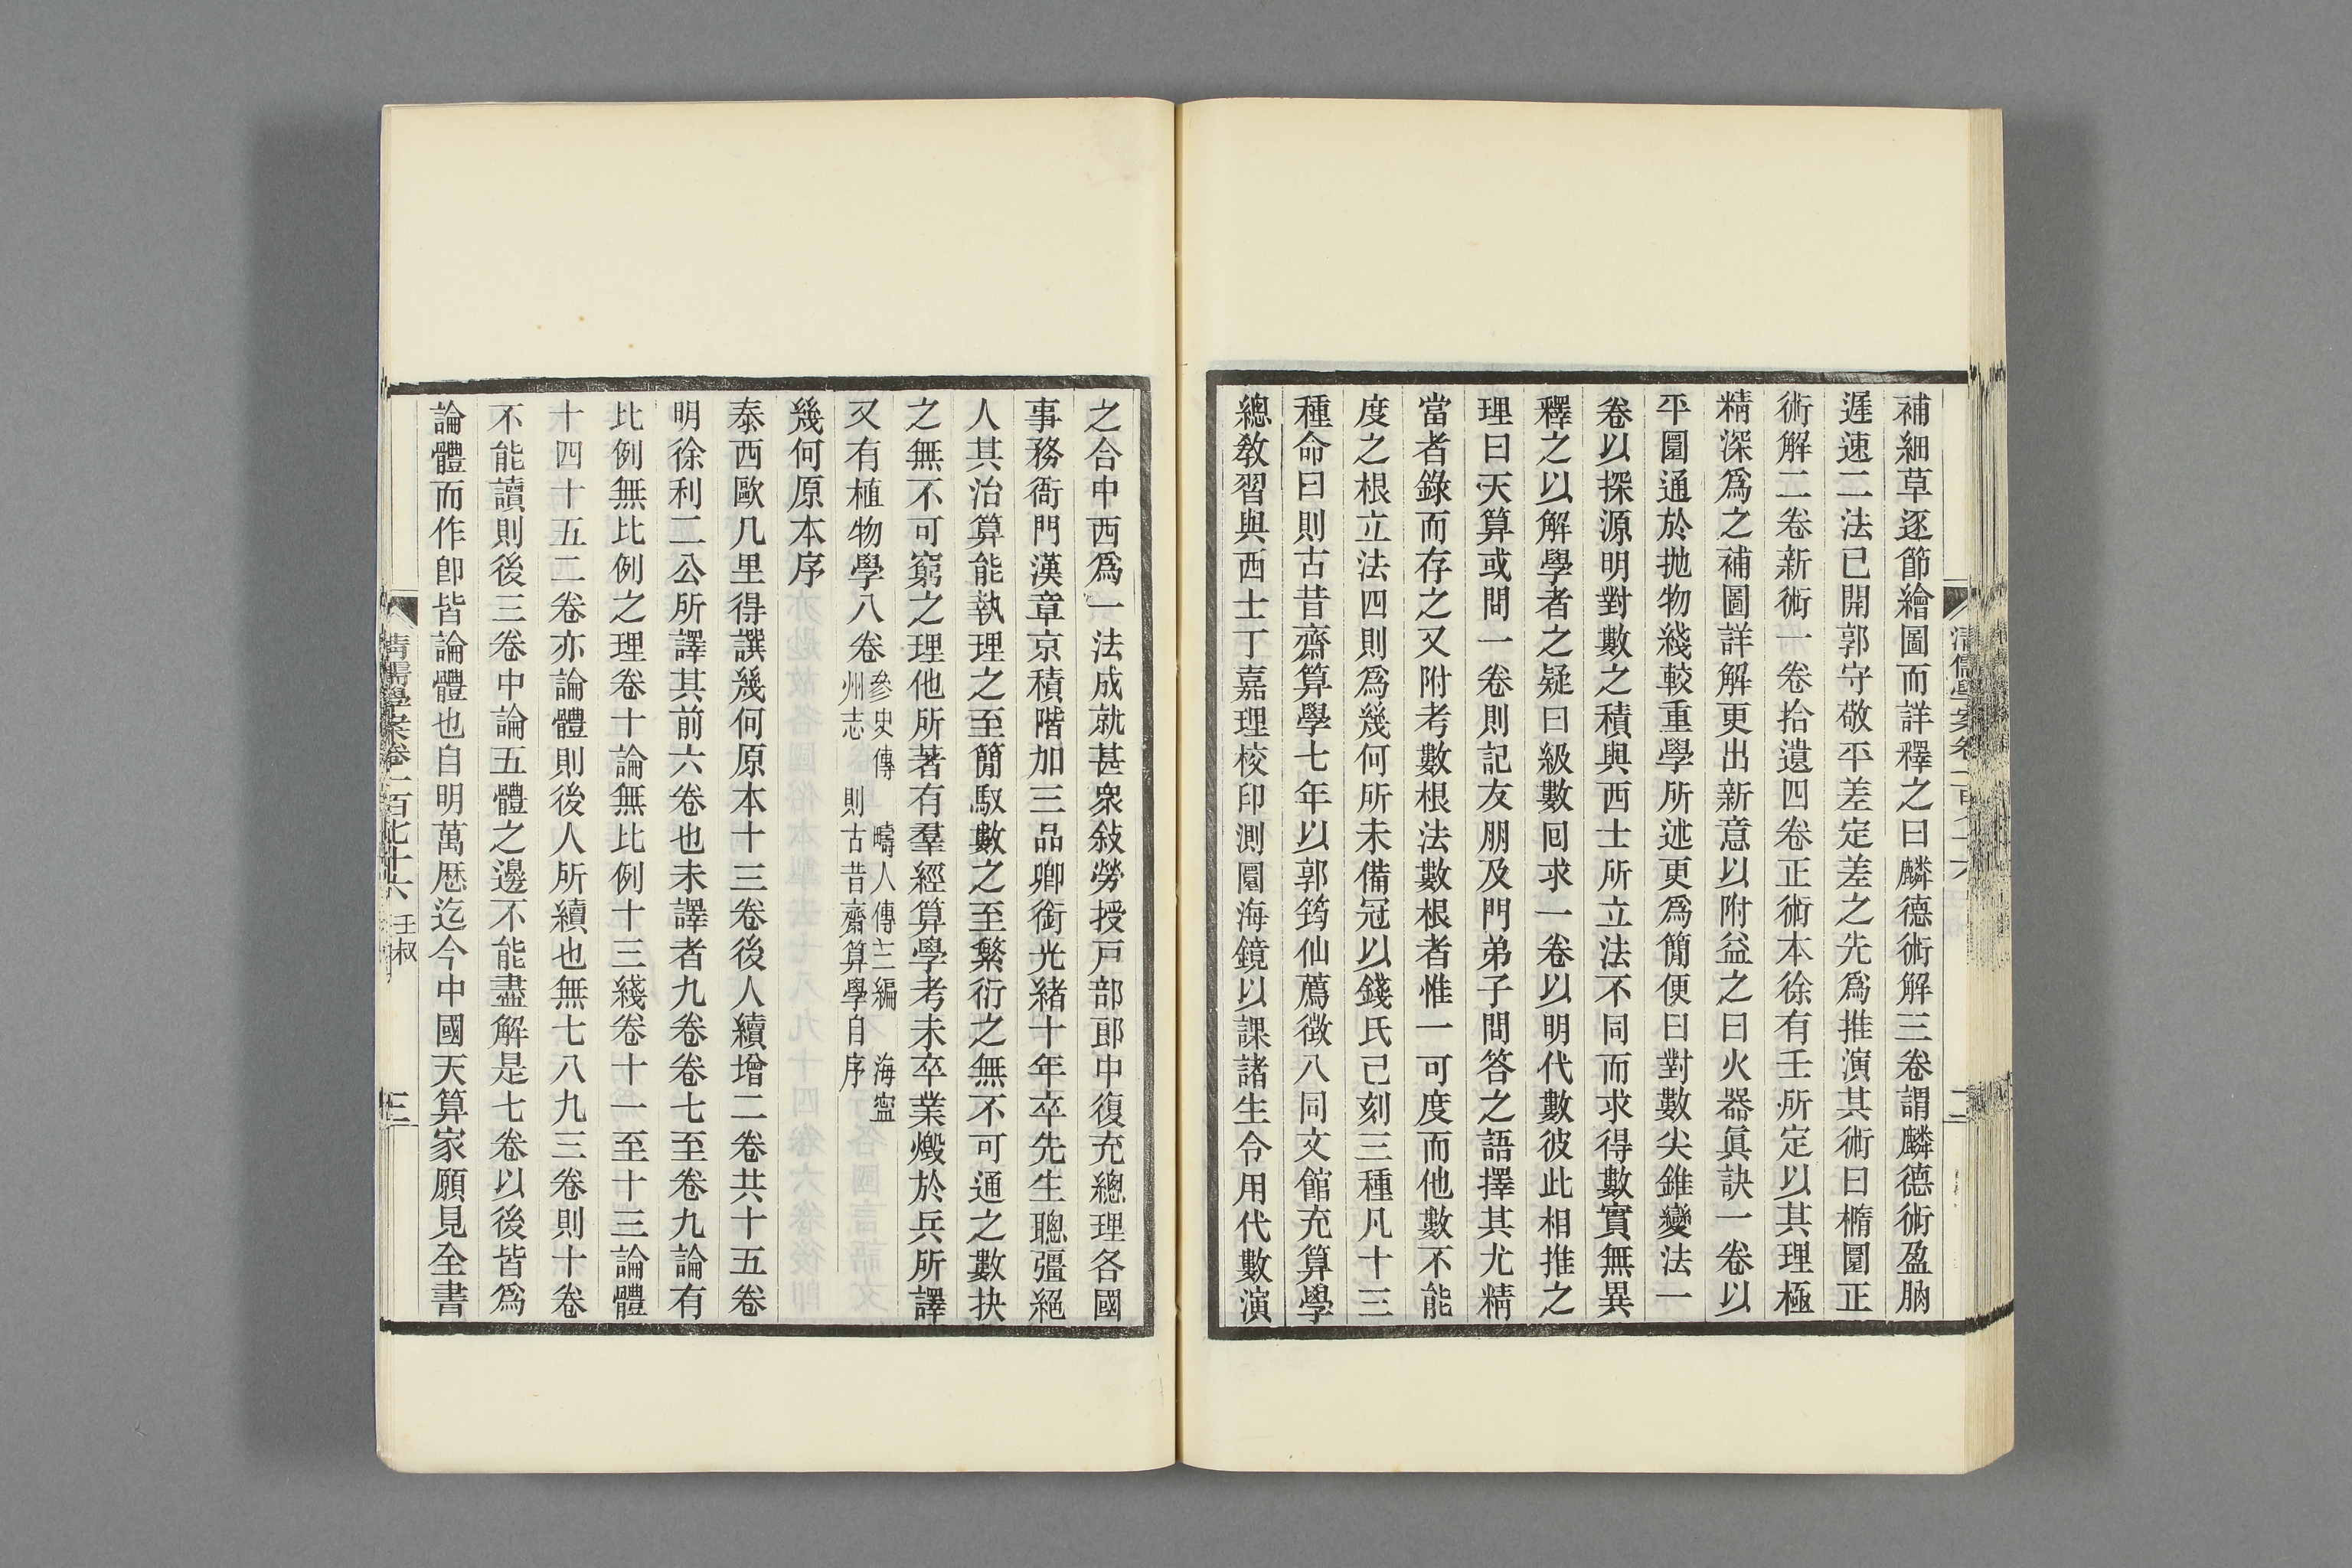 補細草逐節繪圖而詳釋之曰麟德術解三卷謂麟德術盈朒
遲速二法已開郭守敬平差定差之先爲推演其術曰橢圜正
術解二卷新術一卷拾遺四卷正術本徐有壬所定以其理極
精深爲之補圖詳解更出新意以附益之曰火器眞訣一卷以
平圜通於抛物綫較重學所述更爲簡便曰對數尖錐變法一
卷以探源明對數之積與西士所立法不同而求得數實無異
釋之以解學者之疑曰級數回求一卷以明代數彼此相推之
理曰天算或問一卷則記友朋及門弟子問答之語擇其尤精
當者錄而存之又附考數根法數根者惟一可度而他數不能
度之根立法四則爲幾何所未備冠以錢氏已刻三種凡十三
種命曰則古昔齋算學七年以郭筠仙薦徵入同文館充算學
總敎習與西士丁嘉理校印測圜海鏡以課諸生令用代數演
清儒學案卷一百七十六
二
之合中西爲一法成就甚衆敍勞授戸部郎中復充總理各國
事務衙門漢章京積階加三品卿銜光緒十年卒先生聰彊絕
人其治算能執理之至簡馭數之至繁衍之無不可通之數抉
之無不可窮之理他所著有羣經算學考未卒業燬於兵所譯
又有植物學八卷參史傳 疇人傳三編 海寧
州志 則古昔齋算學自序
幾何原本序
泰西歐几里得譔幾何原本十三卷後人續增二卷共十五卷
明徐利二公所譯其前六卷也未譯者九卷卷七至卷九論有
比例無比例之理卷十論無比例十三綫卷十一至十三論體
十四十五二卷亦論體則後人所續也無七八九三卷則十卷
不能讀則後三卷中論五體之邊不能盡解是七卷以後皆爲
論體而作卽皆論體也自明萬厯迄今中國天算家願見全書
清儒學案卷一百七十六 壬叔
三